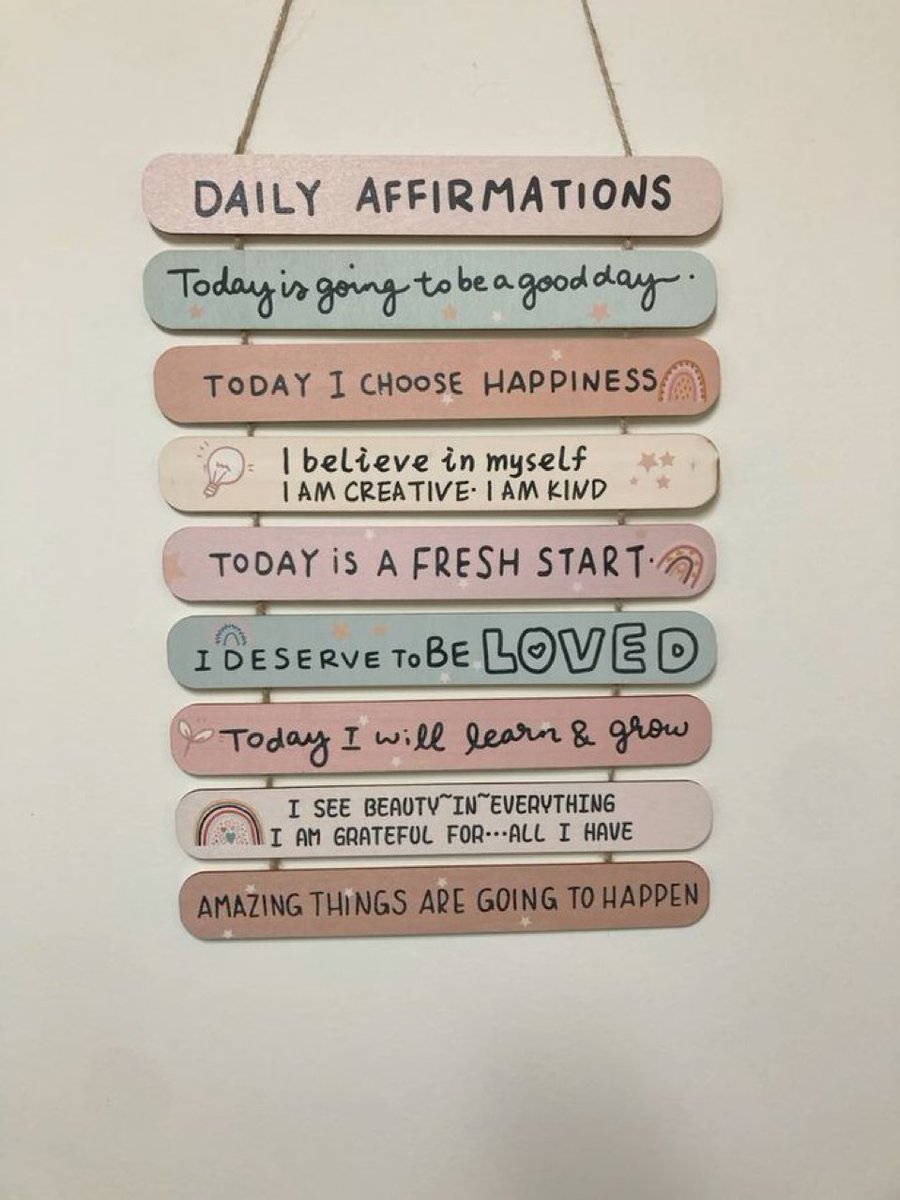 DAILY AFFIRMATIONS
Today is going to be a good day.
TODAY I CHOOSE HAPPINESS
I believe in myself
I AM CREATIVE. I AM KIND
TODAY is A FRESH START.
I DESERVE TO BE LOVED
Today I will learn & grow
I SEE BEAUTY~IN~EVERYTHING
I AM GRATEFUL FOR...ALL I HAVE
AMAZING THINGS ARE GOING TO HAPPEN